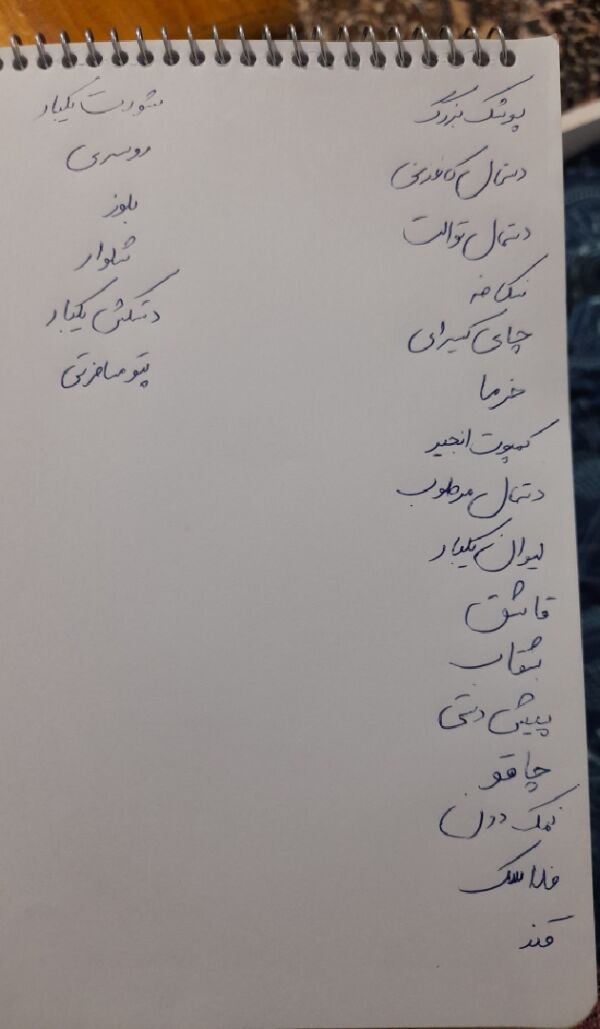 پوشک بزرگ
دستمال کاغذی
دستمال توالت
چای کیسه‌ای
خرما
کمپوت انجیر
دستمال مرطوب
لیوان یکبار
قاشق
بشقاب
پیش دستی
چاقو
نمک دون
فلاسک
قند
شورت یکبار
روسری
بلوز
شلوار
دستکش یکبار
پتو مسافرتی